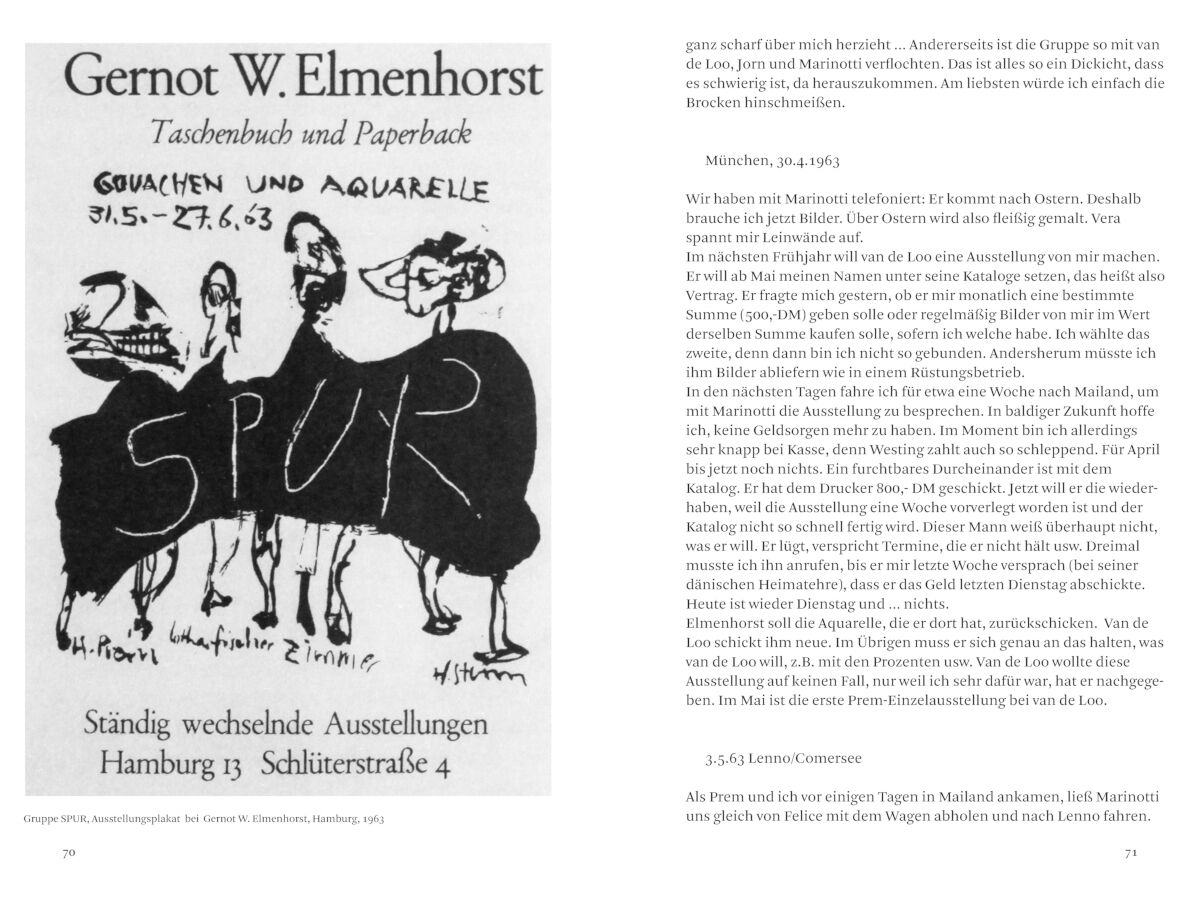 Gernot W. Elmenhorst
Taschenbuch und Paperback
GOUACHEN UND AQUARELLE
31.5.–27.6.63
SPUR
H. Prem lotharfischer Zimmer H. Sturm
Ständig wechselnde Ausstellungen
Hamburg 13 Schlüterstraße 4
Gruppe SPUR, Ausstellungsplakat bei Gernot W. Elmenhorst, Hamburg, 1963
70
ganz scharf über mich herzieht ... Andererseits ist die Gruppe so mit van
de Loo, Jorn und Marinotti verflochten. Das ist alles so ein Dickicht, dass
es schwierig ist, da herauszukommen. Am liebsten würde ich einfach die
Brocken hinschmeißen.
München, 30.4.1963
Wir haben mit Marinotti telefoniert: Er kommt nach Ostern. Deshalb
brauche ich jetzt Bilder. Über Ostern wird also fleißig gemalt. Vera
spannt mir Leinwände auf.
Im nächsten Frühjahr will van de Loo eine Ausstellung von mir machen.
Er will ab Mai meinen Namen unter seine Kataloge setzen, das heißt also
Vertrag. Er fragte mich gestern, ob er mir monatlich eine bestimmte
Summe (500,-DM) geben solle oder regelmäßig Bilder von mir im Wert
derselben Summe kaufen solle, sofern ich welche habe. Ich wählte das
zweite, denn dann bin ich nicht so gebunden. Andersherum müsste ich
ihm Bilder abliefern wie in einem Rüstungsbetrieb.
In den nächsten Tagen fahre ich für etwa eine Woche nach Mailand, um
mit Marinotti die Ausstellung zu besprechen. In baldiger Zukunft hoffe
ich, keine Geldsorgen mehr zu haben. Im Moment bin ich allerdings
sehr knapp bei Kasse, denn Westing zahlt auch so schleppend. Für April
bis jetzt noch nichts. Ein furchtbares Durcheinander ist mit dem
Katalog. Er hat dem Drucker 800,- DM geschickt. Jetzt will er die wieder-
haben, weil die Ausstellung eine Woche vorverlegt worden ist und der
Katalog nicht so schnell fertig wird. Dieser Mann weiß überhaupt nicht,
was er will. Er lügt, verspricht Termine, die er nicht hält usw. Dreimal
musste ich ihn anrufen, bis er mir letzte Woche versprach (bei seiner
dänischen Heimatehre), dass er das Geld letzten Dienstag abschickte.
Heute ist wieder Dienstag und ... nichts.
Elmenhorst soll die Aquarelle, die er dort hat, zurückschicken. Van de
Loo schickt ihm neue. Im Übrigen muss er sich genau an das halten, was
van de Loo will, z.B. mit den Prozenten usw. Van de Loo wollte diese
Ausstellung auf keinen Fall, nur weil ich sehr dafür war, hat er nachgege-
ben. Im Mai ist die erste Prem-Einzelausstellung bei van de Loo.
3.5.63 Lenno/Comersee
Als Prem und ich vor einigen Tagen in Mailand ankamen, ließ Marinotti
uns gleich von Felice mit dem Wagen abholen und nach Lenno fahren.
71